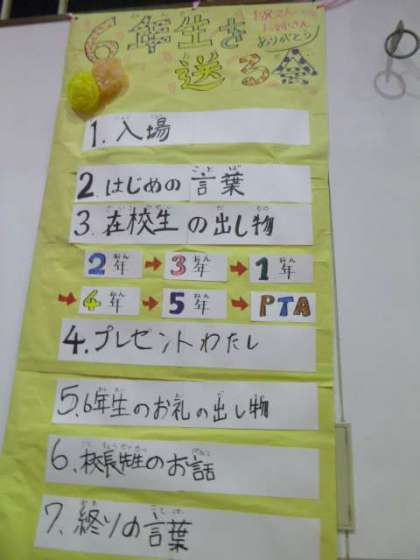 6年生を
送る会
お兄さん
お姉さん
ありがとう
1. 入場
2 はじめの言葉
3. 在校生の出し物
2年→3年→1年
→4年→5年→PTA
4. プレゼントわたし
5. 6年生のお礼の出し物
6. 校長先生のお話
7. 終りの言葉